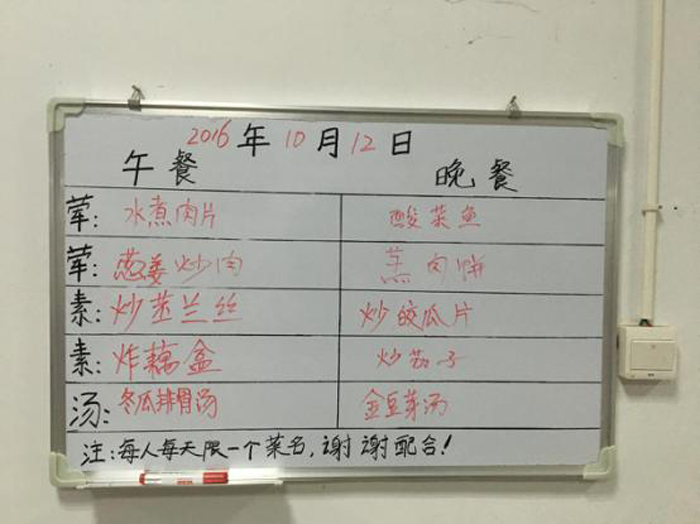 2016年10月12日
午餐 晚餐
荤: 水煮肉片 酸菜鱼
荤: 葱姜炒肉 蒸肉饼
素: 炒苤兰丝 炒皎瓜片
素: 炸藕盒 炒茄子
汤: 冬瓜排骨汤 金豆芽汤
注:每人每天限一个菜名,谢谢配合!